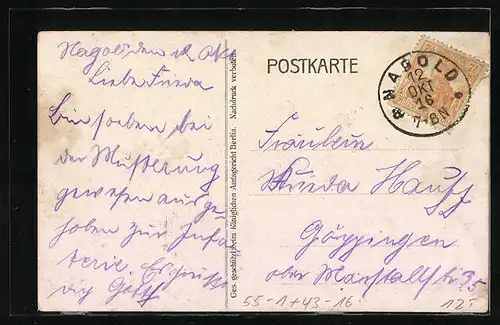 Nagold, den 12 Okt.
Liebe Frieda
Bin soeben bei
der Musterung
gewesen ausge
hoben zur Infan
terie. Es grüsst
dich
Ges. geschützt beim Königlichen Amtsgericht Berlin. Nachdruck verboten.
POSTKARTE
NAGOLD
12
OKT
16
7-8N
Fräulein
Frieda Hauff
Göppingen
obere Marstallstr. 35
55-1+43-16
12.-